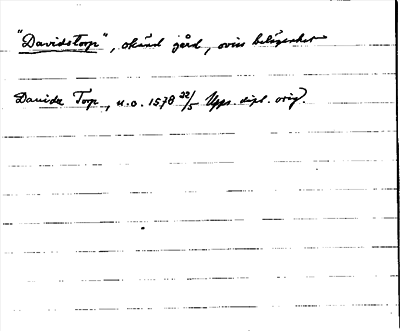 "Davidstorp", okänd gård, oviss belägenhet
Davids Torp, u.o. 1578 22/5 Upps. dipl. orig.